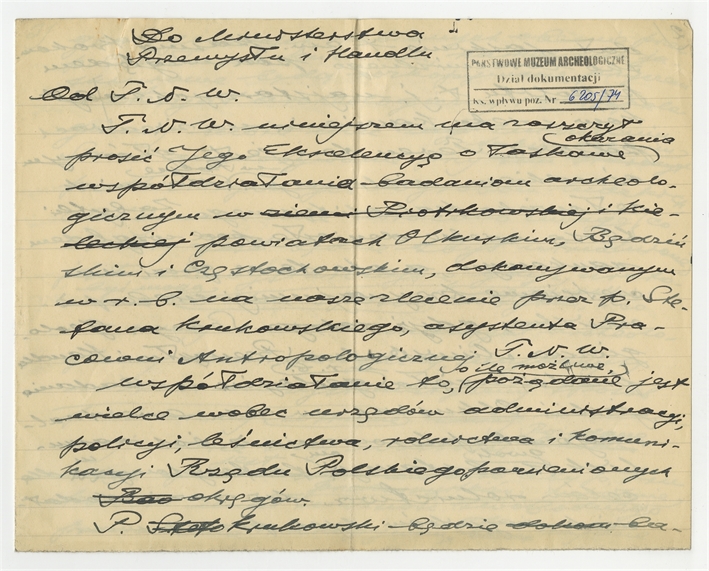 I
Do Ministerstwa
Przemysłu i Handlu
PAŃSTWOWE MUZEUM ARCHEOLOGICZNE
Dział dokumentacji
Ks. wpływu poz. Nr 6205/74
Od T. N. W.
T. N. W. niniejszem ma zaszczyt
prosić Jego Ekscelencyę o łaskawe okazania
współdziałania badaniom archeolo-
gicznym w ziemi Piotrkowskiej i Kie-
leckiej powiatach Olkuskim, Będziń
skim i Częstochowskim, dokonywanym
w r. b. na nasze zlecenie przez p. Ste-
fana Krukowskiego, asystenta Pra-
cowni Antropologicznej T. N. W.
współdziałanie to, o ile możliwe, pożądane jest
wielce wobec urzędów administracji,
policyi, leśnictwa, rolnictwa i komuni-
kacyi Rządu Polskiego pomienionych
okręgów.
P. Krukowski będzie ba-